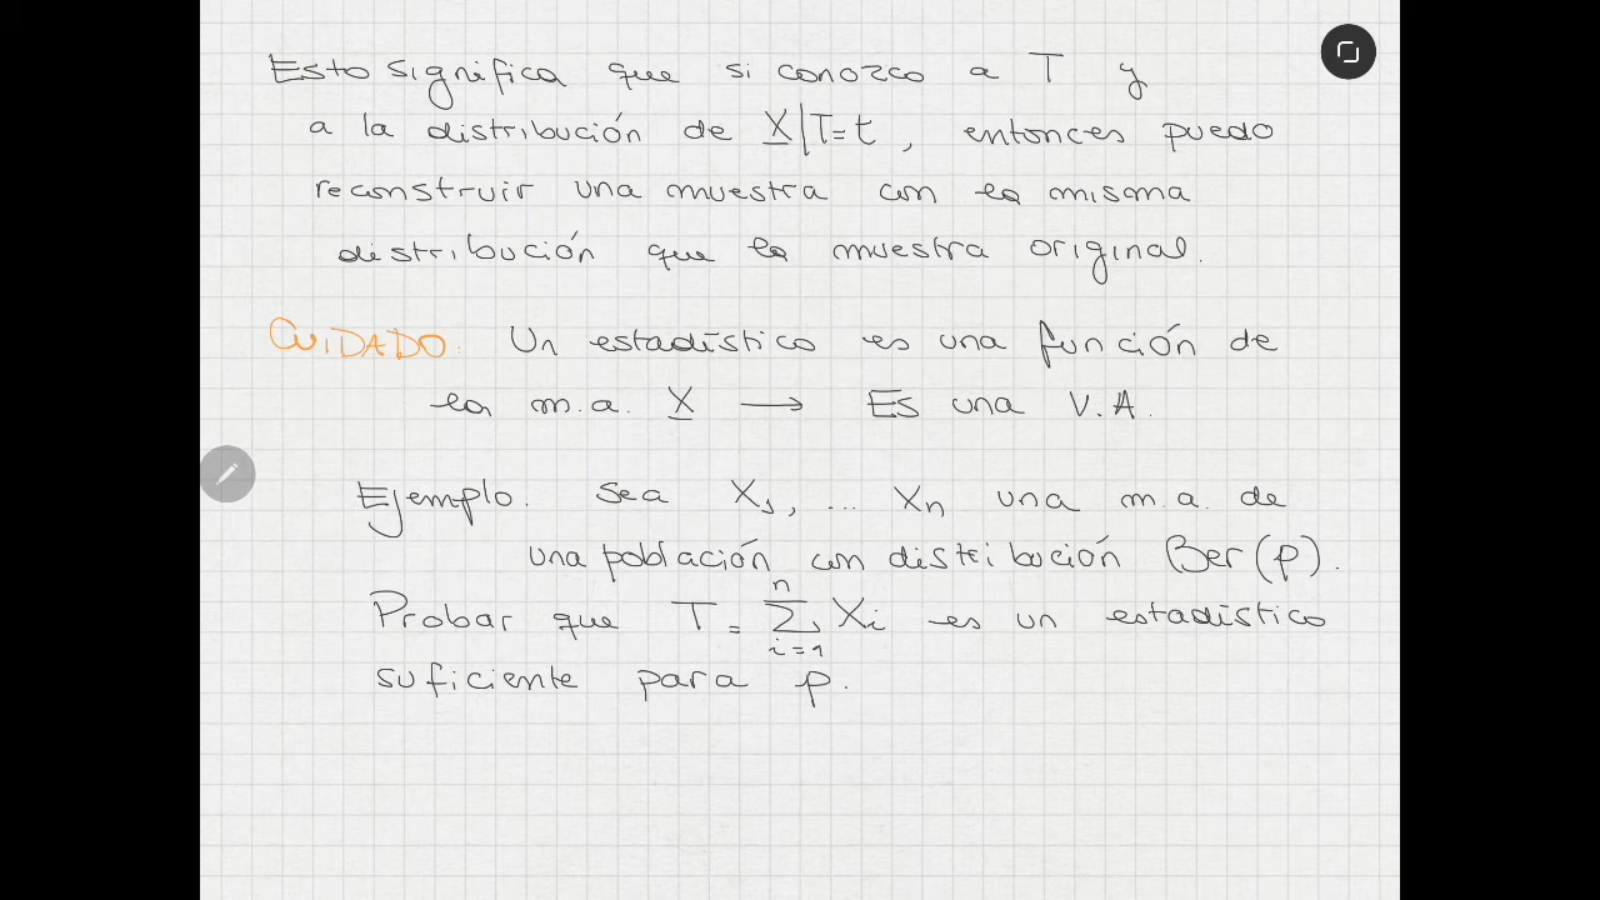 Esto significa que si conozco a T y
a la distribución de X|T=t, entonces puedo
reconstruir una muestra con la misma
distribución que la muestra original.
CUIDADO. Un estadístico es una función de
la m.a. X → Es una V.A.
Ejemplo. Sea X₁, ... Xn una m.a. de
una población con distribución Ber(p).
Probar que T = Σ_{i=1}^{n} Xi es un estadístico
suficiente para p.